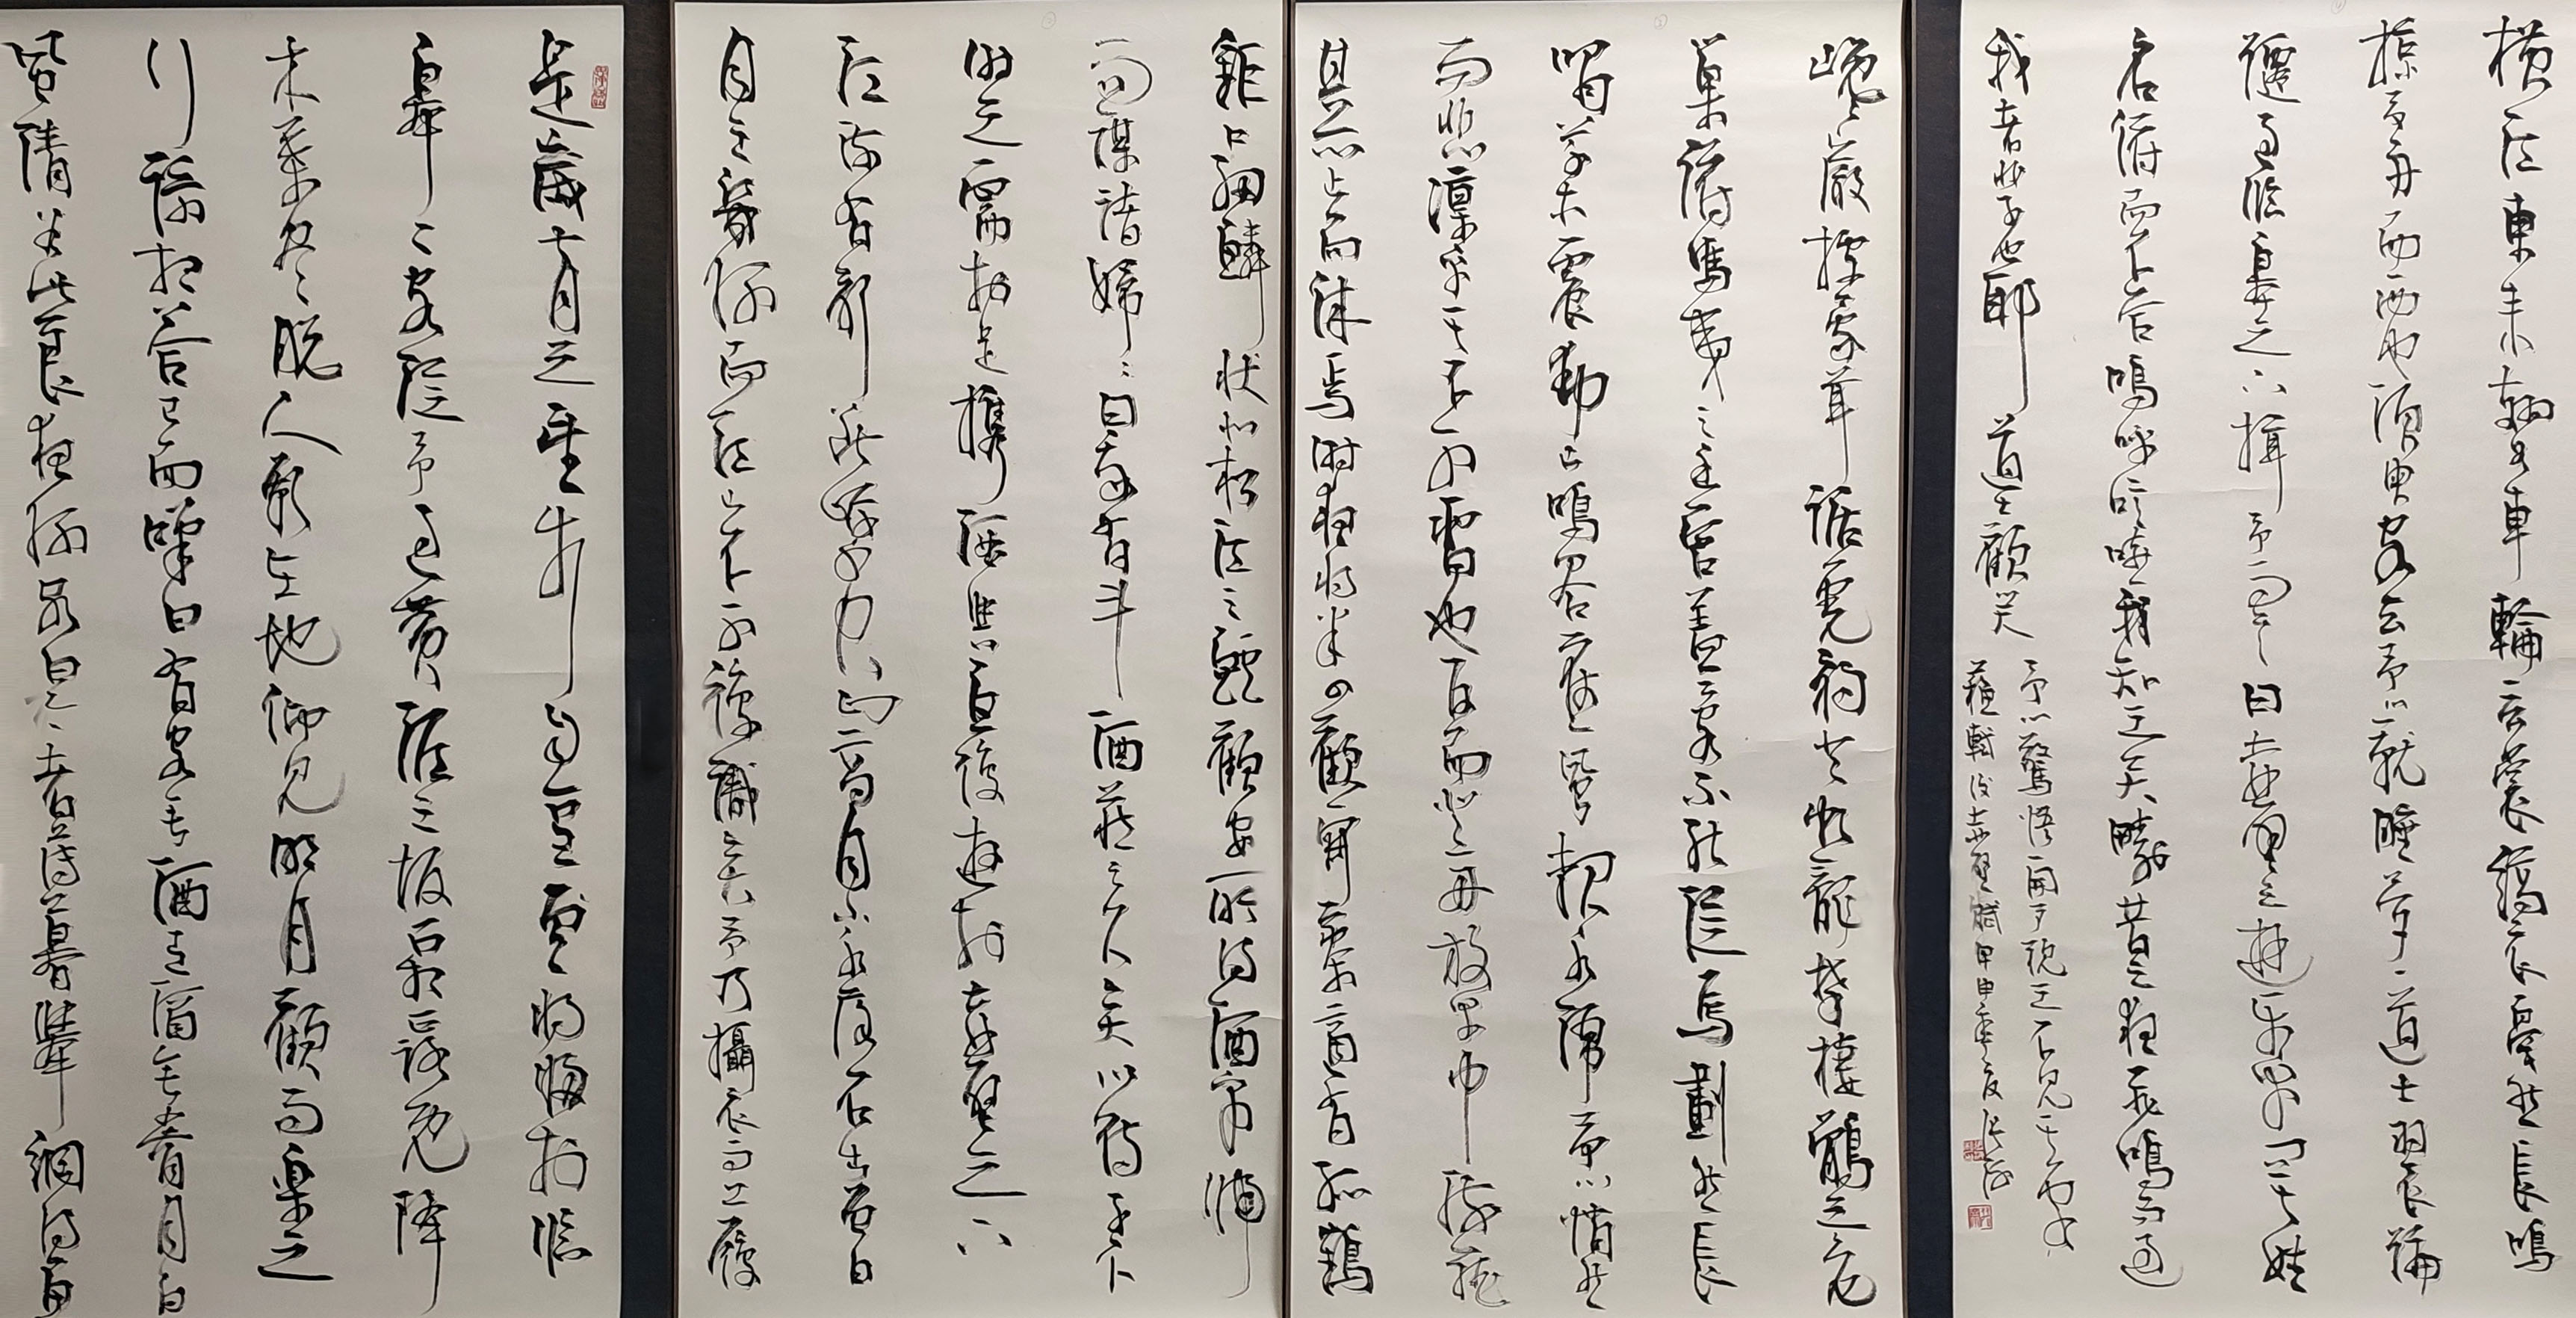 是歲十月之望步自雪堂將歸於臨
皋二客從予過黃泥之坂霜露既降
木葉盡脫人影在地仰見明月顧而樂之
行歌相答已而嘆曰有客無酒有酒無肴月白
風清如此良夜何客曰今者薄暮舉網得魚
巨口細鱗狀如松江之鱸顧安所得酒乎歸
而謀諸婦婦曰我有斗酒藏之久矣以待子不
時之需於是攜酒與魚復遊於赤壁之下
江流有聲斷岸千尺山高月小水落石出曾日
月之幾何而江山不可復識矣予乃攝衣而上履
巉巖披蒙茸踞虎豹登虯龍攀棲鶻之危
巢俯馮夷之幽宮蓋二客不能從焉劃然長
嘯草木震動山鳴谷應風起水涌予亦悄然
而悲凜乎其不可留也反而登舟放乎中流聽
其所止而休焉時夜將半四顧寂寥適有孤鶴
橫江東來翅如車輪玄裳縞衣戛然長鳴
掠予舟而西也須臾客去予亦就睡夢一道士羽衣蹁
躚過臨皋之下揖予而言曰赤壁之遊樂乎問其姓
名俯而不答嗚呼噫嘻我知之矣疇昔之夜飛鳴而過
我者非子也耶道士顧笑
予亦驚悟開戶視之不見其處
蘇軾後赤壁賦甲申